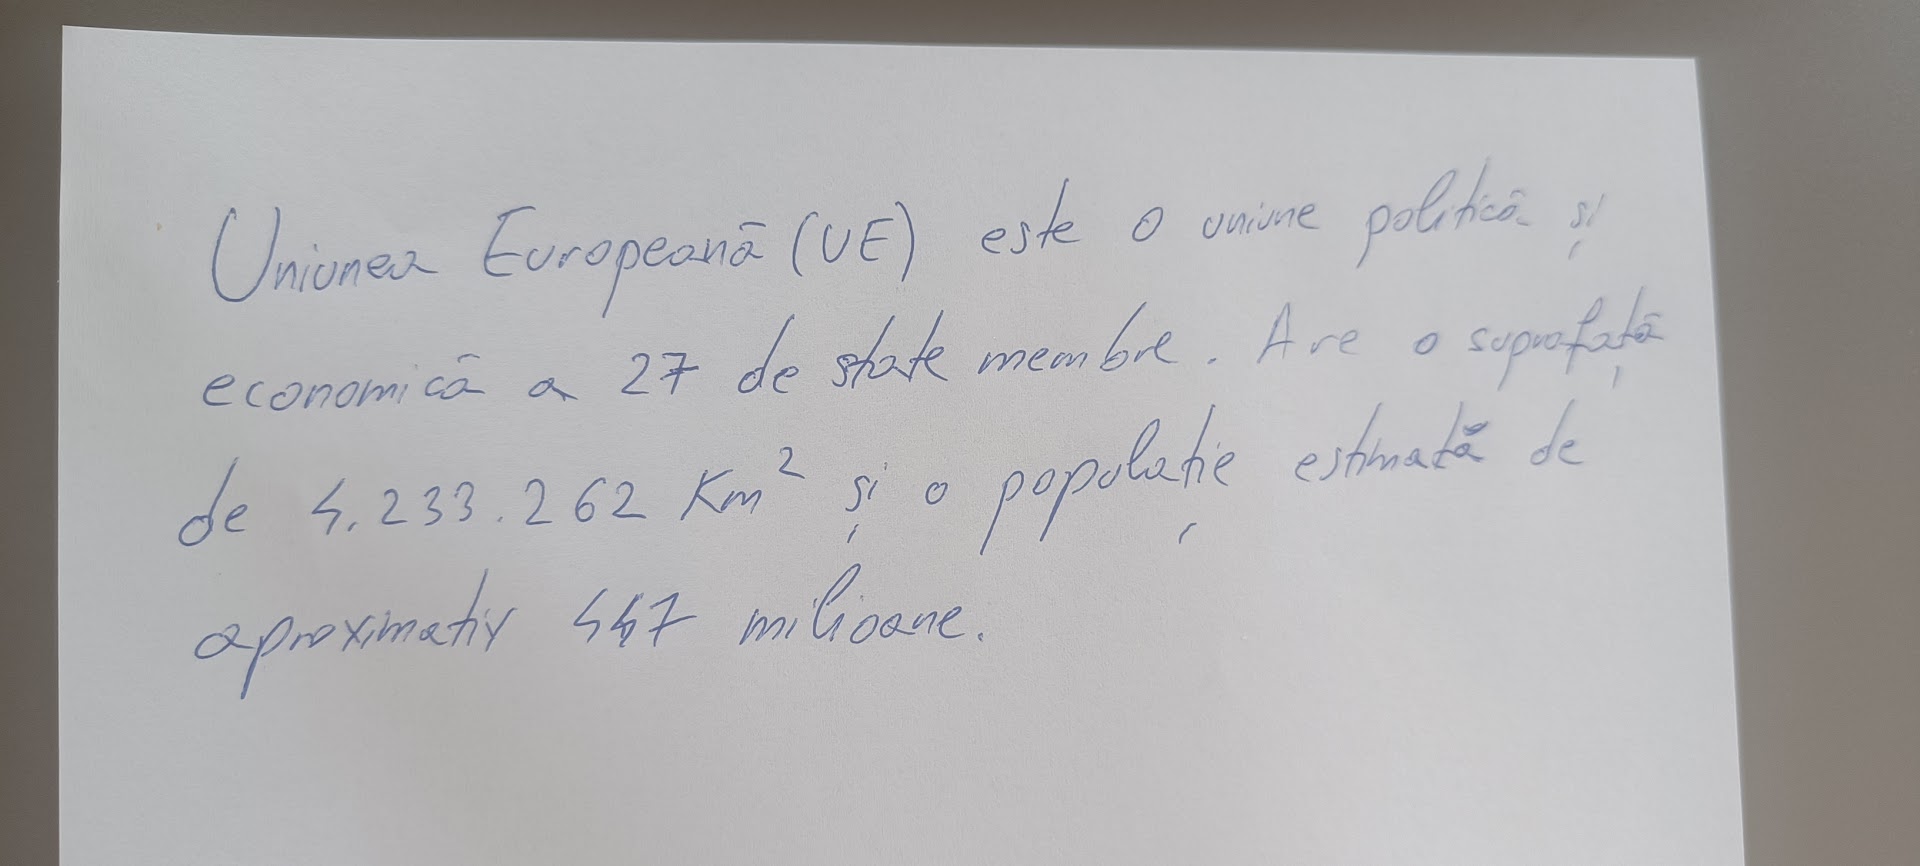 Uniunea Europeană (UE) este o uniune politică și
economică a 27 de state membre. Are o suprafață
de 4.233.262 Km² și o populație estimată de
aproximativ 447 milioane.